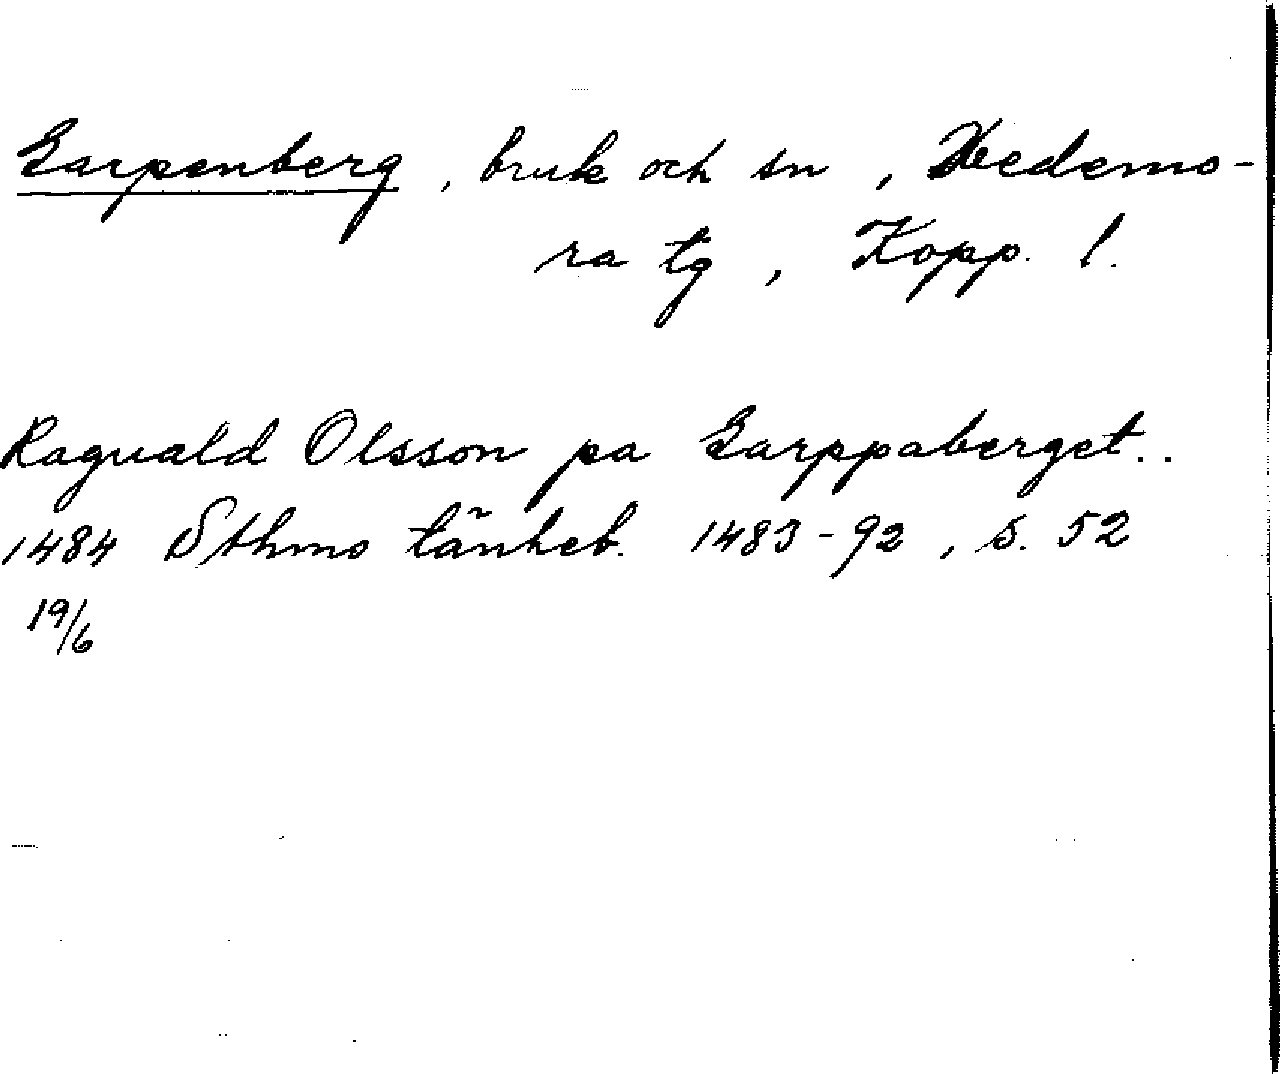 Garpenberg, bruk och sn, Hedemo-
ra tg, Kopp. l.
Raguald Olsson pa Garppaberget..
1484 Sthms tänkeb. 1483-92, s. 52
19/6